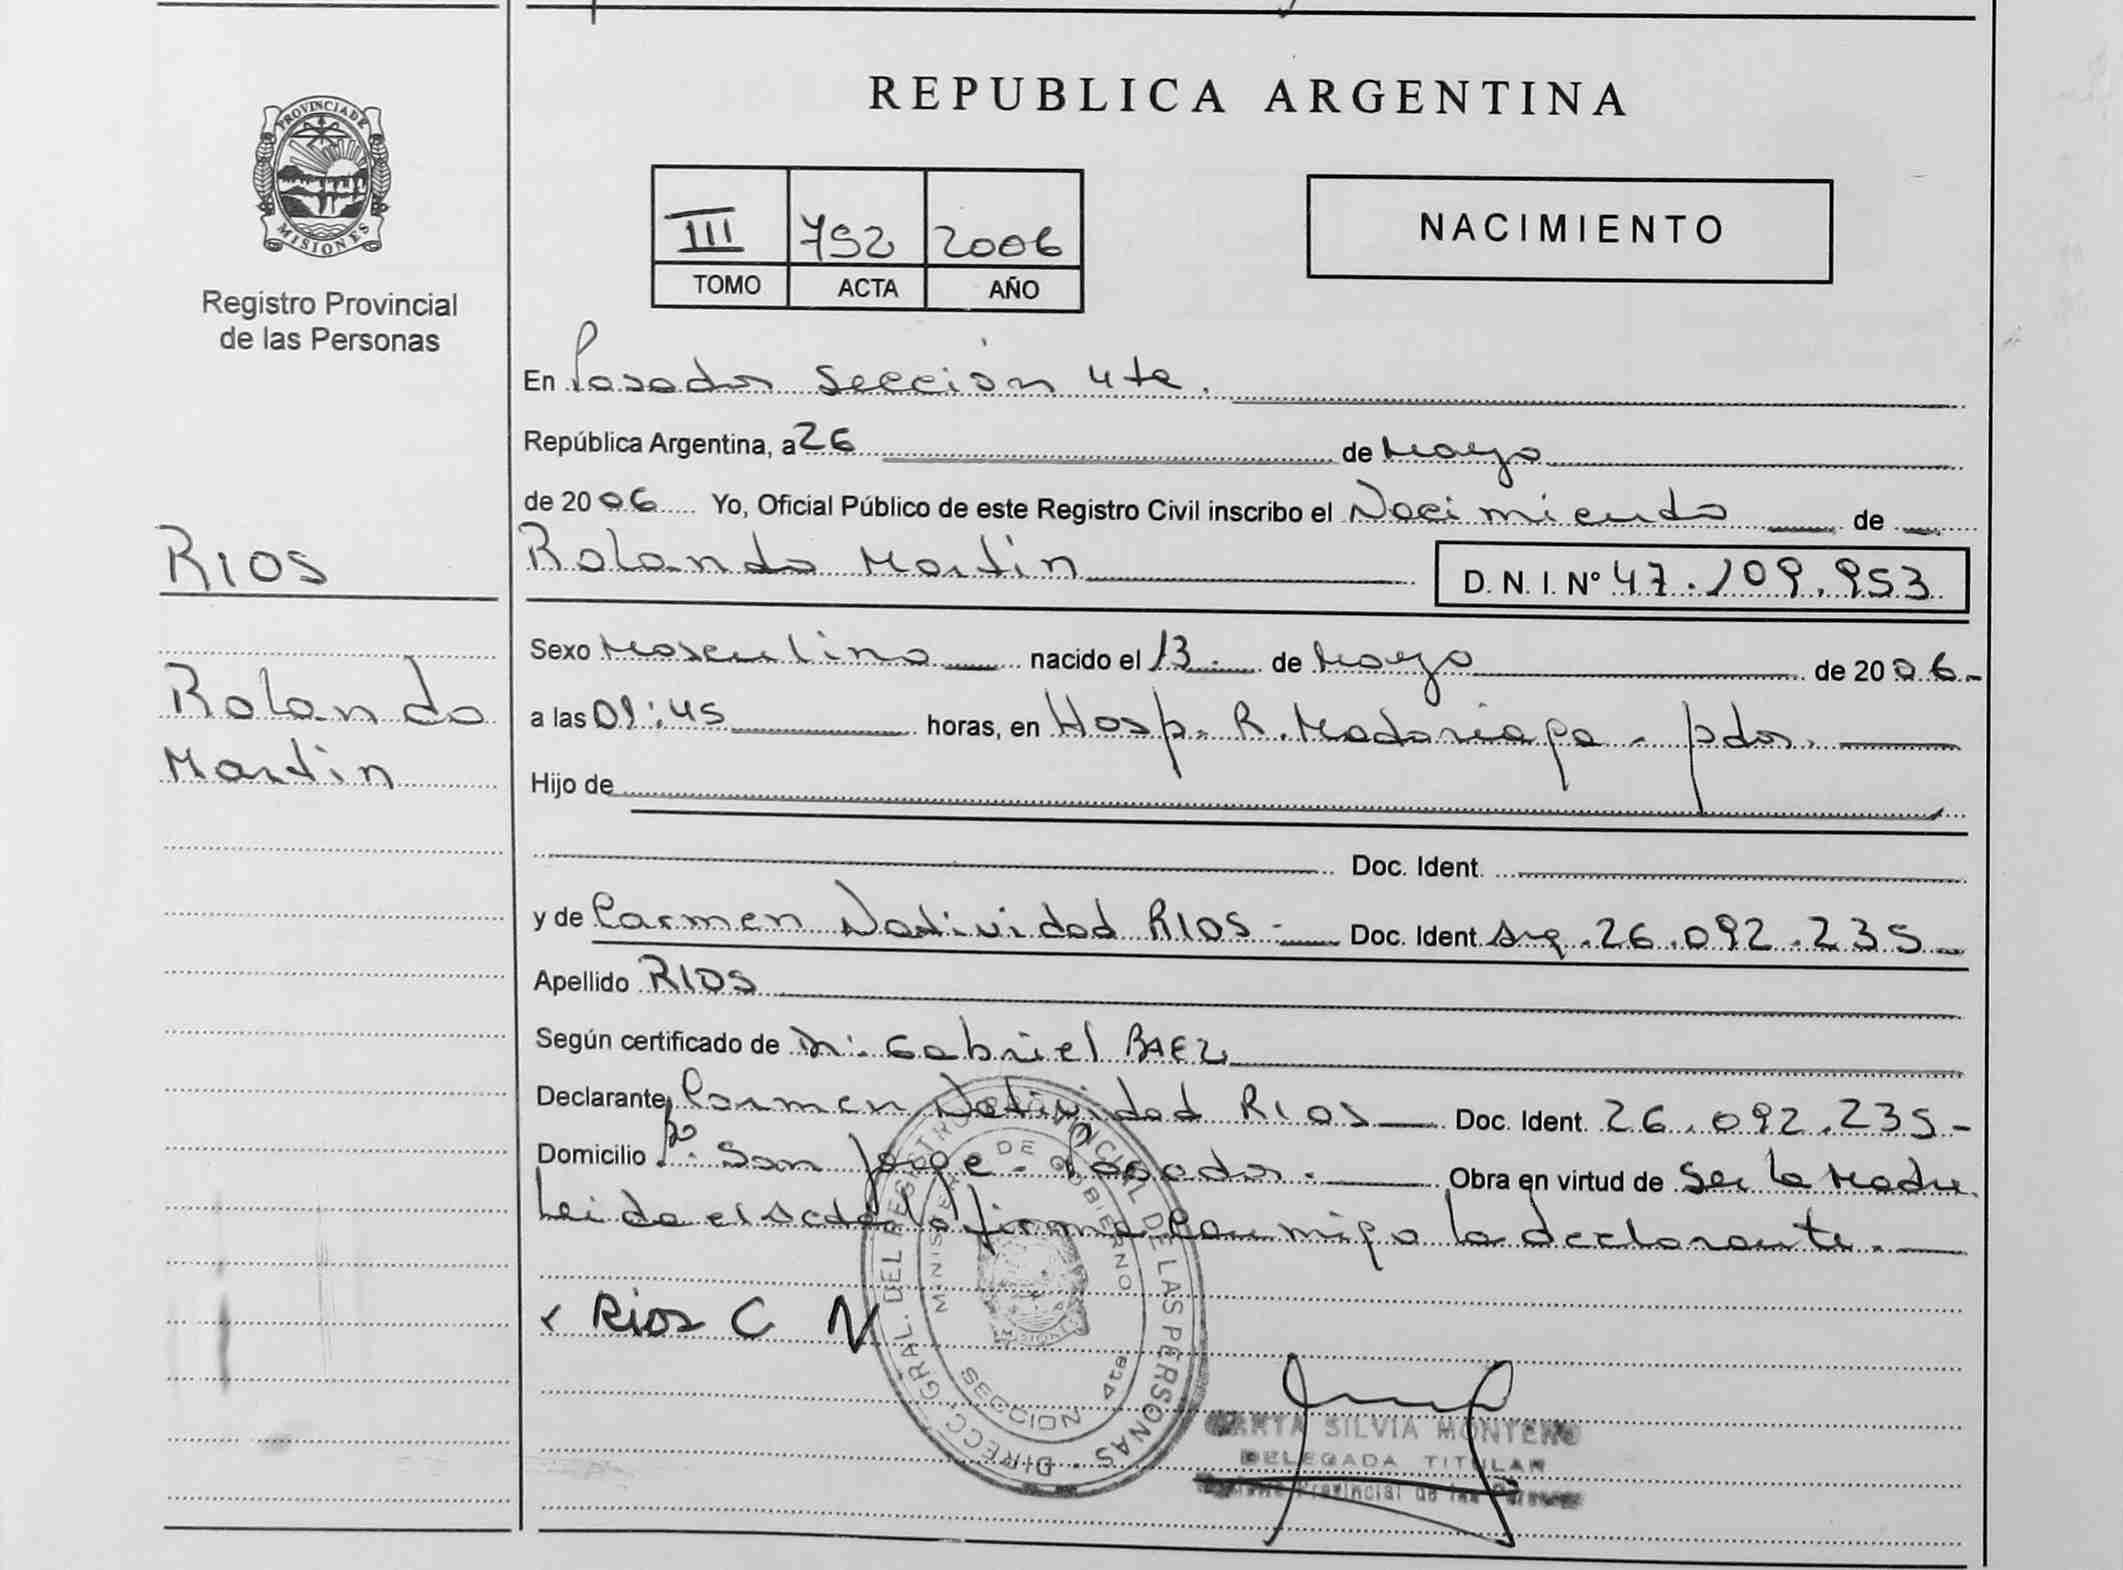 REPUBLICA ARGENTINA
PROVINCIA DE MISIONES
Registro Provincial
de las Personas
III 752 2006
TOMO ACTA AÑO
NACIMIENTO
En Posadas Sección 4ta.
República Argentina, a 26 de Mayo
de 2006 Yo, Oficial Público de este Registro Civil inscribo el Nacimiento de
RIOS
Rolando Martin
Rolando Martin D. N. I. Nº 47.109.953
Sexo Masculino nacido el 13 de Mayo de 2006.-
a las 01:45 horas, en Hosp. R. Madariaga - pdas.
Hijo de
Doc. Ident.
y de Carmen Natividad RIOS - Doc. Ident Arg. 26.092.235
Apellido RIOS
Según certificado de Dr. Gabriel BAEZ
Declarante Carmen Natividad RIOS Doc. Ident. 26.092.235-
Domicilio Bº. San Jorge - Posadas. Obra en virtud de Ser la Madre.
Leida el Acta la firma conmigo la declarante.
Rios C N
DIRECC. GRAL. DEL REGISTRO PROVINCIAL DE LAS PERSONAS
MINISTERIO DE GOBIERNO
MISIONES
SECCION 4ta
MARTA SILVIA MONTERO
DELEGADA TITULAR
Registro Provincial de las Personas